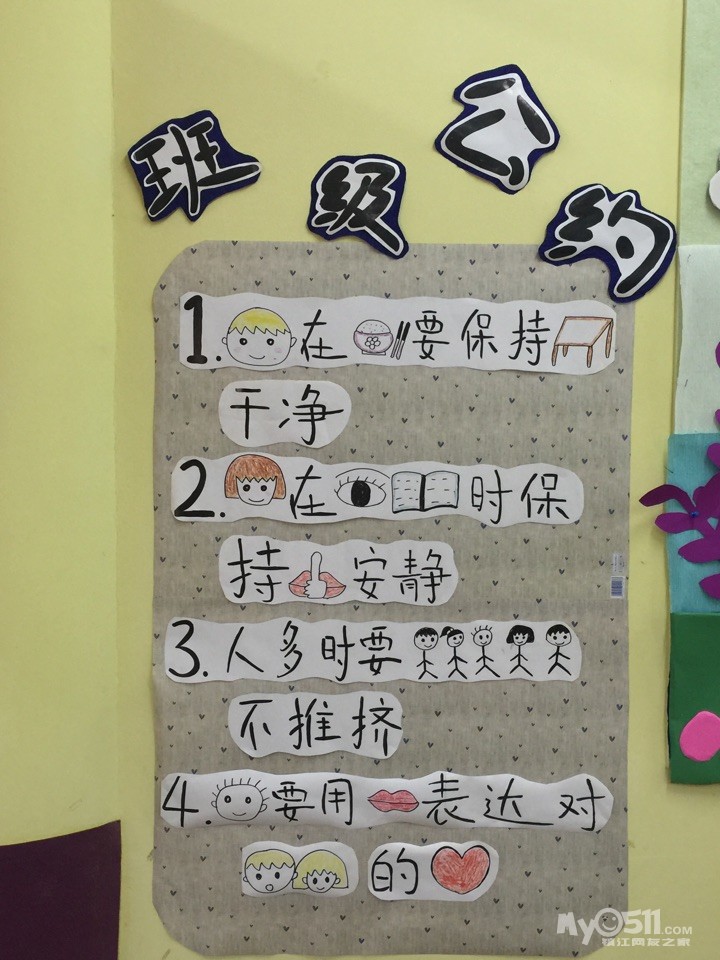 班级公约
1.在要保持
干净
2.在时保
持安静
3.人多时要
不推挤
4.要用表达对
的
My0511.COM
镇江网友之家